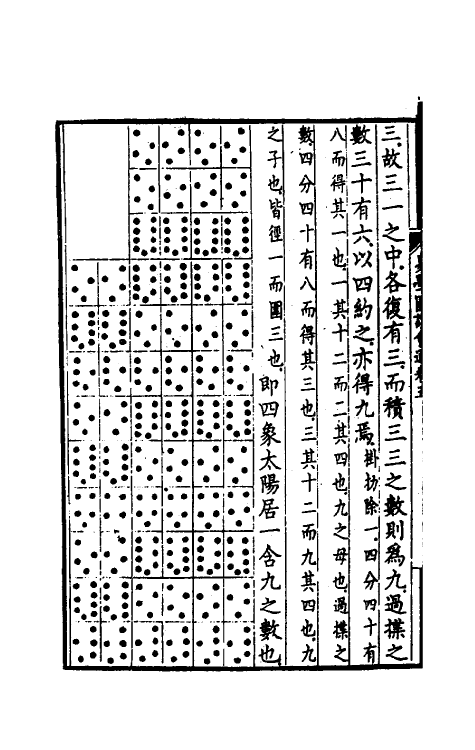 三故三一之中各復有三而積三三之數則爲九過揲之
數三十有六以四約之亦得九焉掛扐除一四分四十有
八而得其一也一其十二而二其四也九之母也過揲之
數四分四十有八而得其三也三其十二而九其四也九
之子也皆徑一而圍三也即四象太陽居一含九之數也